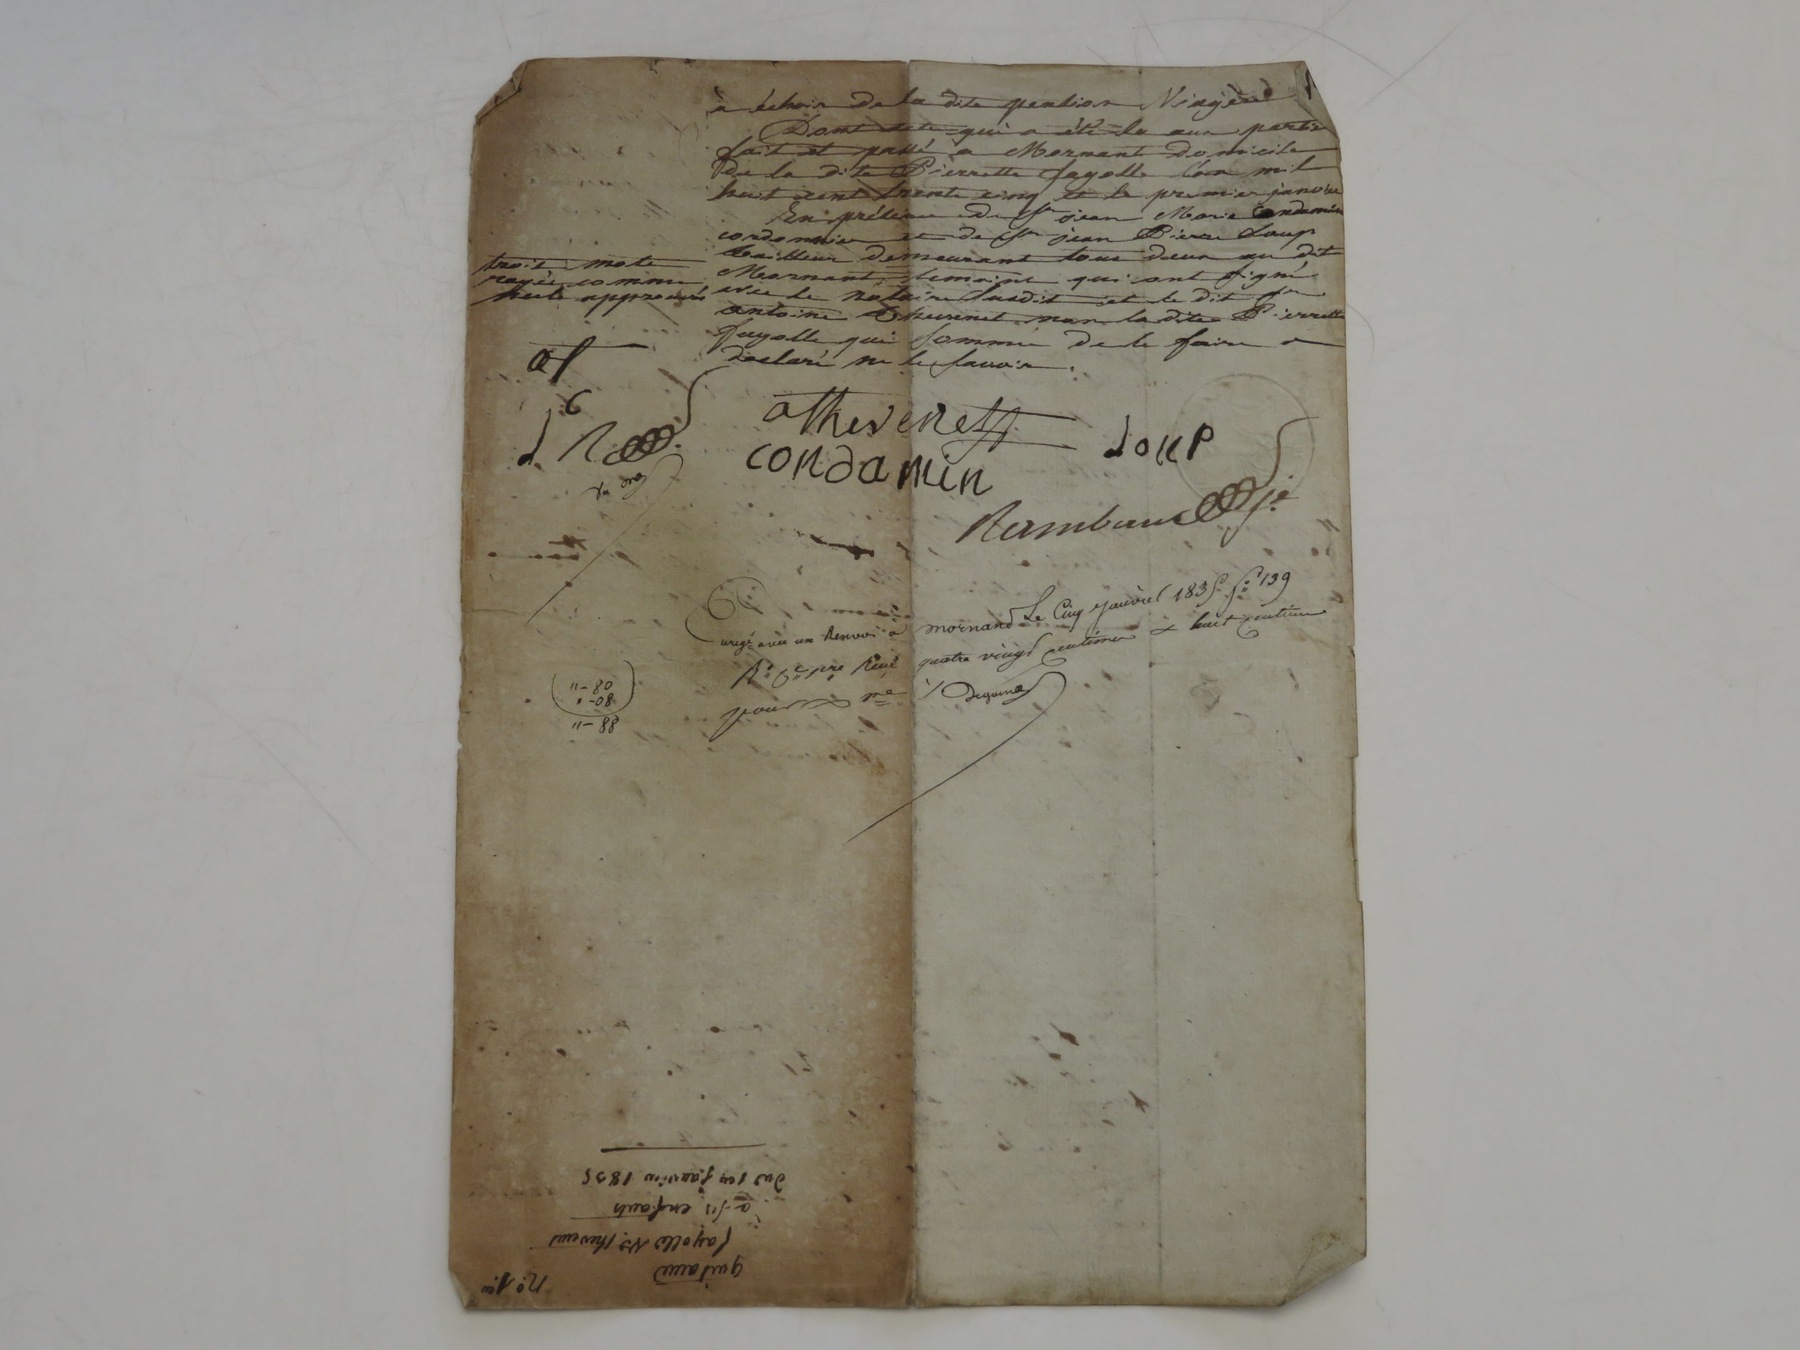 à échoir de la dite pention Viagère
Dont acte qui a été lu aux partie
fait et passé a Mornant domicile
de la dite Pierrette fayolle l'an mil
huit cent trente cinq et le premier janvier
En présence de Sr jean Marie Condamin
cordonnier et de Sr jean Pierre Loup
tailleur demeurant tous deux au dit
Mornant, temoins qui ont signé
avec le notaire susdit et le dit Sr
antoine Thevenet non la dite Pierrette
fayolle qui sommé de le faire a
declaré ne le savoir.
trois mots
rayés comme
nuls approuvés
af
C
L R
athevenett
condamin
Loup
Rambaud
Enregé avec un Renvoi à mornand Le Cinq Janvier 1835 fo 139
Ro Ce Reçu quatre vingt centimes & huit centimes
pour
"-80
80-"
"-88
No 1er
quitance
fayolle Ve Thevenet
a ses enfants
du 1er janvier 1835